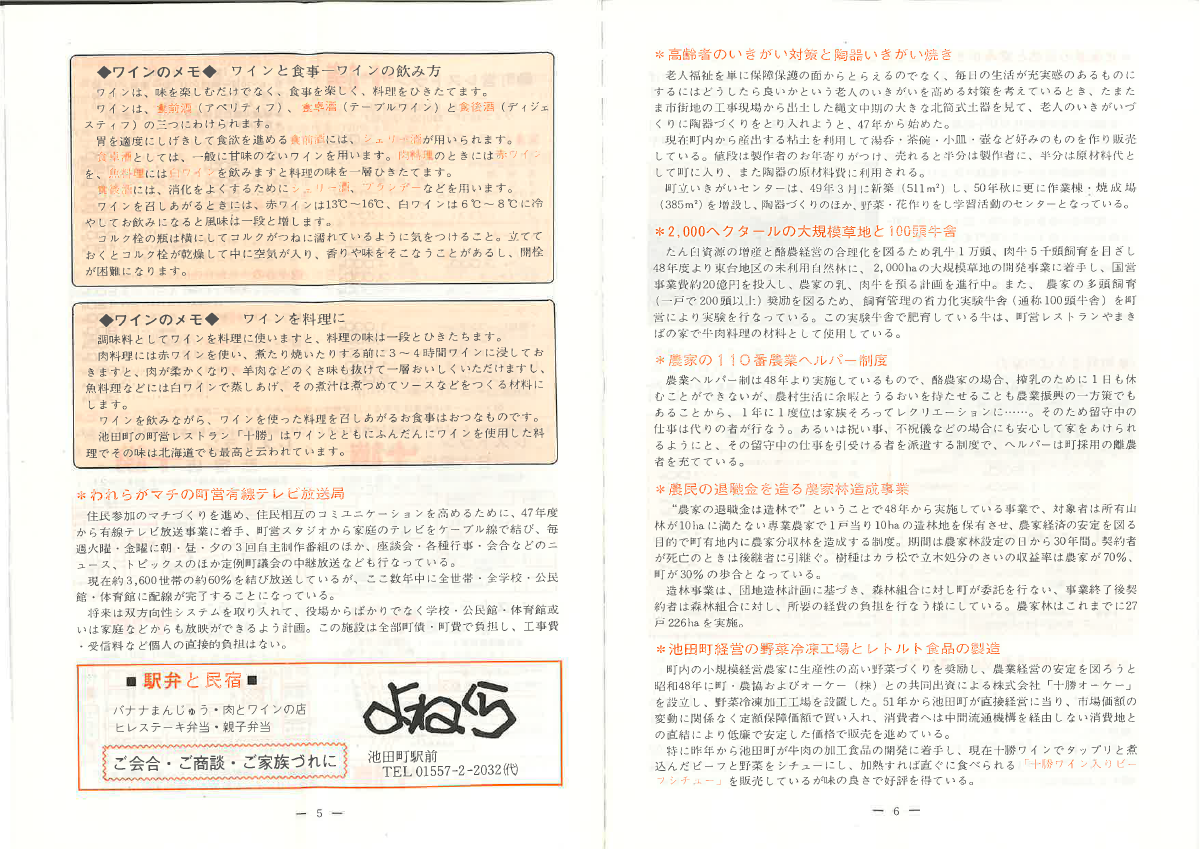 ◆ワインのメモ◆　ワインと食事―ワインの飲み方
ワインは、味を楽しむだけでなく、食事を楽しく、料理をひきたてます。
ワインは、食前酒（アペリティフ）、食卓酒（テーブルワイン）と食後酒（ディジェ
スティフ）の三つにわけられます。
胃を適度にしげきして食欲を進める食前酒には、シェリー酒が用いられます。
食卓酒としては、一般に甘味のないワインを用います。肉料理のときには赤ワイン
を、魚料理には白ワインを飲みますと料理の味を一層ひきたてます。
食後酒には、消化をよくするためにシェリー酒、ブランデーなどを用います。
ワインを召しあがるときには、赤ワインは13℃～16℃、白ワインは6℃～8℃に冷
やしてお飲みになると風味は一段と増します。
コルク栓の瓶は横にしてコルクがつねに濡れているように気をつけること。立てて
おくとコルク栓が乾燥して中に空気が入り、香りや味をそこなうことがあるし、開栓
が困難になります。
◆ワインのメモ◆　ワインを料理に
調味料としてワインを料理に使いますと、料理の味は一段とひきたちます。
肉料理には赤ワインを使い、煮たり焼いたりする前に3～4時間ワインに浸してお
きますと、肉が柔かくなり、羊肉などのくさ味も抜けて一層おいしくいただけますし、
魚料理などには白ワインで蒸しあげ、その煮汁は煮つめてソースなどをつくる材料に
します。
ワインを飲みながら、ワインを使った料理を召しあがるお食事はおつなものです。
池田町の町営レストラン「十勝」はワインとともにふんだんにワインを使用した料
理でその味は北海道でも最高と云われています。
＊われらがマチの町営有線テレビ放送局
住民参加のマチづくりを進め、住民相互のコミユニケーションを高めるために、47年度
から有線テレビ放送事業に着手、町営スタジオから家庭のテレビをケーブル線で結び、毎
週火曜・金曜に朝・昼・夕の3回自主制作番組のほか、座談会・各種行事・会合などのニ
ュース、トピックスのほか定例町議会の中継放送なども行なっている。
現在約3,600世帯の約60％を結び放送しているが、ここ数年中に全世帯・全学校・公民
館・体育館に配線が完了することになっている。
将来は双方向性システムを取り入れて、役場からばかりでなく学校・公民館・体育館或
いは家庭などからも放映ができるよう計画。この施設は全部町債・町費で負担し、工事費
・受信料など個人の直接的負担はない。
■駅弁と民宿■
バナナまんじゅう・肉とワインの店
ヒレステーキ弁当・親子弁当
ご会合・ご商談・ご家族づれに
よねくら
池田町駅前
TEL 01557-2-2032(代)
― 5 ―
＊高齢者のいきがい対策と陶器いきがい焼き
老人福祉を単に保障保護の面からとらえるのでなく、毎日の生活が充実感のあるものに
するにはどうしたら良いかという老人のいきがいを高める対策を考えているとき、たまた
ま市街地の工事現場から出土した縄文中期の大きな北筒式土器を見て、老人のいきがいづ
くりに陶器づくりをとり入れようと、47年から始めた。
現在町内から産出する粘土を利用して湯呑・茶碗・小皿・壺など好みのものを作り販売
している。値段は製作者のお年寄りがつけ、売れると半分は製作者に、半分は原材料代と
して町に入り、また陶器の原材料費に利用される。
町立いきがいセンターは、49年3月に新築（511㎡）し、50年秋に更に作業棟・焼成場
（385㎡）を増設し、陶器づくりのほか、野菜・花作りをし学習活動のセンターとなっている。
＊2,000ヘクタールの大規模草地と100頭牛舎
たん白資源の増産と酪農経営の合理化を図るため乳牛1万頭、肉牛5千頭飼育を目ざし
48年度より東台地区の未利用自然林に、2,000haの大規模草地の開発事業に着手し、国営
事業費約20億円を投入し、農家の乳、肉牛を預る計画を進行中。また、農家の多頭飼育
（一戸で200頭以上）奨励を図るため、飼育管理の省力化実験牛舎（通称100頭牛舎）を町
営により実験を行なっている。この実験牛舎で肥育している牛は、町営レストランやまき
ばの家で牛肉料理の材料として使用している。
＊農家の110番農業ヘルパー制度
農業ヘルパー制は48年より実施しているもので、酪農家の場合、搾乳のために1日も休
むことができないが、農村生活に余暇とうるおいを持たせることも農業振興の一方策でも
あることから、1年に1度位は家族そろってレクリエーションに……。そのため留守中の
仕事は代りの者が行なう。あるいは祝い事、不祝儀などの場合にも安心して家をあけられ
るようにと、その留守中の仕事を引受ける者を派遣する制度で、ヘルパーは町採用の離農
者を充てている。
＊農民の退職金を造る農家林造成事業
“農家の退職金は造林で”ということで48年から実施している事業で、対象者は所有山
林が10haに満たない専業農家で1戸当り10haの造林地を保有させ、農家経済の安定を図る
目的で町有地内に農家分収林を造成する制度。期間は農家林設定の日から30年間。契約者
が死亡のときは後継者に引継ぐ。樹種はカラ松で立木処分のさいの収益率は農家が70％、
町が30％の歩合となっている。
造林事業は、団地造林計画に基づき、森林組合に対し町が委託を行ない、事業終了後契
約者は森林組合に対し、所要の経費の負担を行なう様にしている。農家林はこれまでに27
戸226haを実施。
＊池田町経営の野菜冷凍工場とレトルト食品の製造
町内の小規模経営農家に生産性の高い野菜づくりを奨励し、農業経営の安定を図ろうと
昭和48年に町・農協およびオーケー（株）との共同出資による株式会社「十勝オーケー」
を設立し、野菜冷凍加工工場を設置した。51年から池田町が直接経営に当り、市場価値の
変動に関係なく定額保障価額で買い入れ、消費者へは中間流通機構を経由しない消費地と
の直結により低廉で安定した価格で販売を進めている。
特に昨年から池田町が牛肉の加工食品の開発に着手し、現在十勝ワインでタップリと煮
込んだビーフと野菜をシチューにし、加熱すれば直ぐに食べられる「十勝ワイン入りビー
フシチュー」を販売しているが味の良さで好評を得ている。
― 6 ―